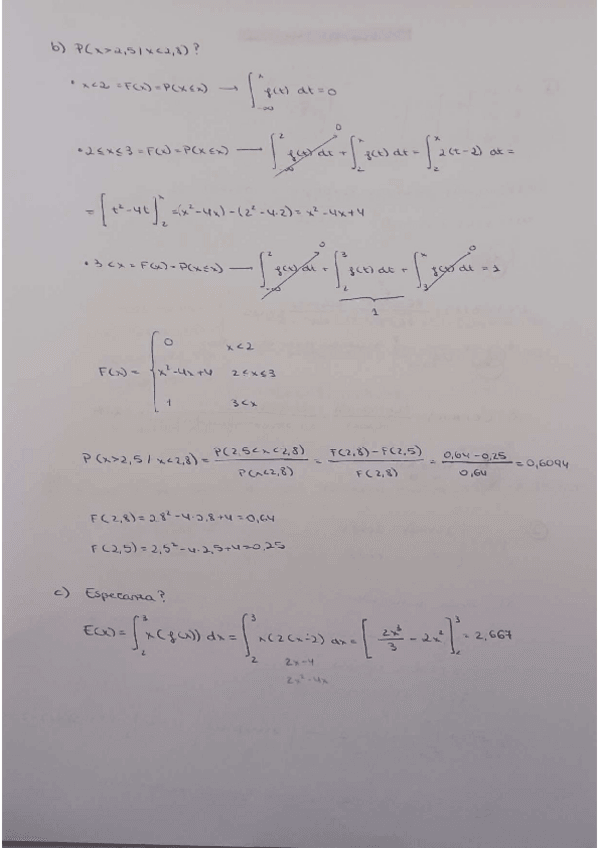 b) P(x>2,5/x<2,8)?
• x<2 = F(x)=P(X≤x) → ∫_{-∞}^{x} f(t) dt = 0
• 2≤x≤3 = F(x)=P(X≤x) → ∫_{-∞}^{2} f(t) dt + ∫_{2}^{x} f(t) dt = ∫_{2}^{x} 2(t-2) dt =
= [t²-4t]_{2}^{x} = (x²-4x)-(2²-4·2) = x²-4x+4
• 3<x = F(x)=P(X≤x) → ∫_{-∞}^{2} f(t) dt + ∫_{2}^{3} f(t) dt + ∫_{3}^{x} f(t) dt = 1
0 x<2
F(x) = { x²-4x+4 2≤x≤3
1 3<x
P(x>2,5/x<2,8) = P(2,5<x<2,8) / P(x<2,8) = F(2,8)-F(2,5) / F(2,8) = 0,64-0,25 / 0,64 = 0,6094
F(2,8) = 2,8²-4·2,8+4 = 0,64
F(2,5) = 2,5²-4·2,5+4 = 0,25
c) Esperanza?
E(x) = ∫_{2}^{3} x(f(x)) dx = ∫_{2}^{3} x(2(x-2) dx = [2x³/3 - 2x²]_{2}^{3} = 2,667
2x-4
2x²-4x